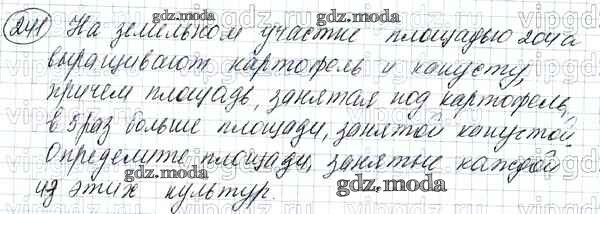 241 На земельном участке площадью 204 а
выращивают картофель и капусту,
причем площадь, занятая под картофель,
в 5 раз больше площади, занятой капустой.
Определите площади, занятые каждой
из этих культур.
gdz.moda
gdz.moda
gdz.moda
gdz.moda
gdz.moda